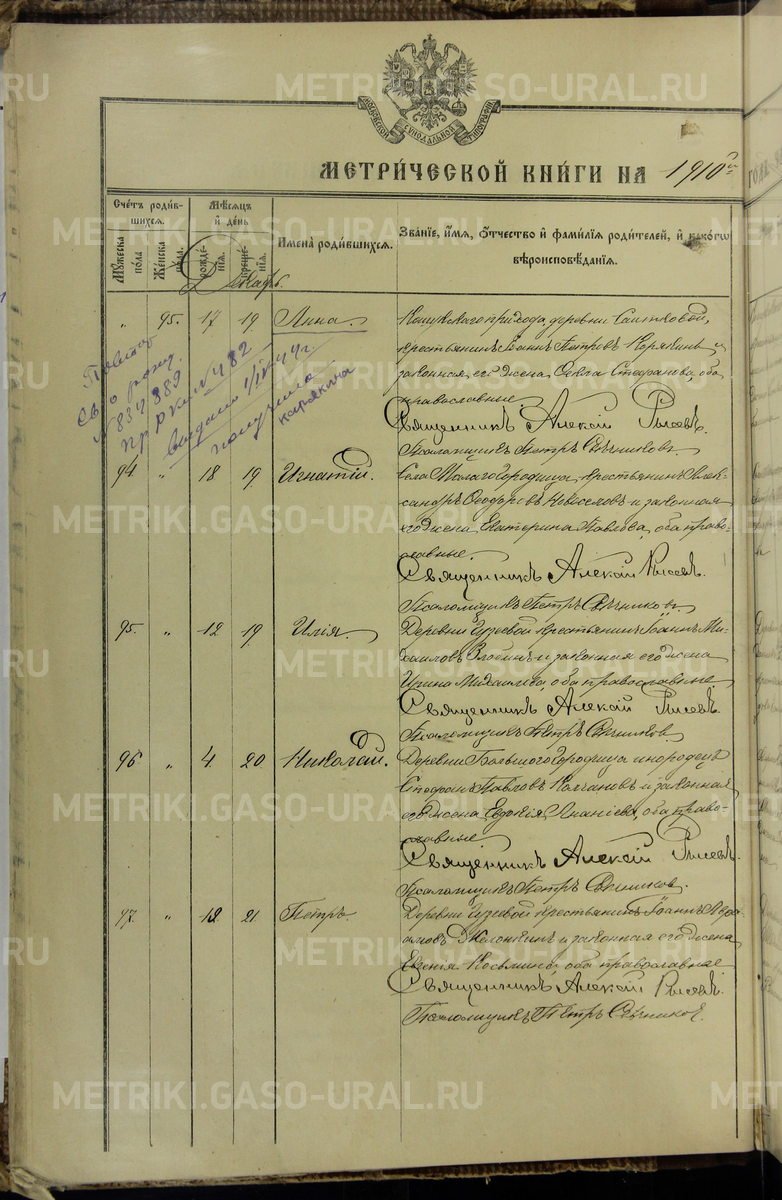 МОСКОВСКОЙ СѴНОДАЛЬНОЙ ТИПОГРАФІИ
МЕТРИ́ЧЕСКОЙ КНИ́ГИ НА 1910 г.
Счетъ роди́вшихся.
Мꙋжеска по́ла
Же́нска по́ла.
Мѣсяцъ и҆ де́нь
рожде́нїѧ.
креще́нїѧ.
Имена̀ роди́вшихся.
Зва́нїе, и҆́мѧ, ѻ҆́тчество и҆ фами́лїѧ роди́телей, и҆ како́гѡ
вѣроисповѣ́данїѧ.
Декабрь.
" 95. 17 19 Анна.
прихода, деревни
крестьянинъ Іоаннъ Петровъ Корякинъ и
законная его жена Стефанова, оба
православные
Священникъ Алексій Рысевъ.
Псаломщикъ Петръ Свѣчниковъ.
Повтор.
св о рожд.
№ 834389
482
выдано
получила
Карякина
94 " 18 19 Игнатій.
Села Малаго Городища, крестьянинъ Алек-
сандръ Ѳеодоровъ Новоселовъ и законная
его жена Екатерина Павлова, оба право-
славные.
Священникъ Алексій Рысевъ.
Псаломщикъ Петръ Свѣчниковъ.
95. " 12 19 Илія.
Деревни крестьянинъ Іоаннъ Ми-
хаиловъ Злобинъ и законная его жена
Ирина Михаилова, оба православные.
Священникъ Алексій Рысевъ.
Псаломщикъ Петръ Свѣчниковъ
96 " 4. 20 Николай.
Деревни Большого Городища инородецъ
Стефанъ Павловъ Колчановъ и законная
его жена Евдокія Ананіева, оба право-
славные
Священникъ Алексій Рысевъ.
Псаломщикъ Петръ Свѣчниковъ.
97. " 18 21 Петръ.
Деревни крестьянинъ Іоаннъ
и законная его жена
Евгенія Косьмина, оба православные
Священникъ Алексій Рысевъ.
Псаломщикъ Петръ Свѣчниковъ.
METRIKI.GASO-URAL.RU